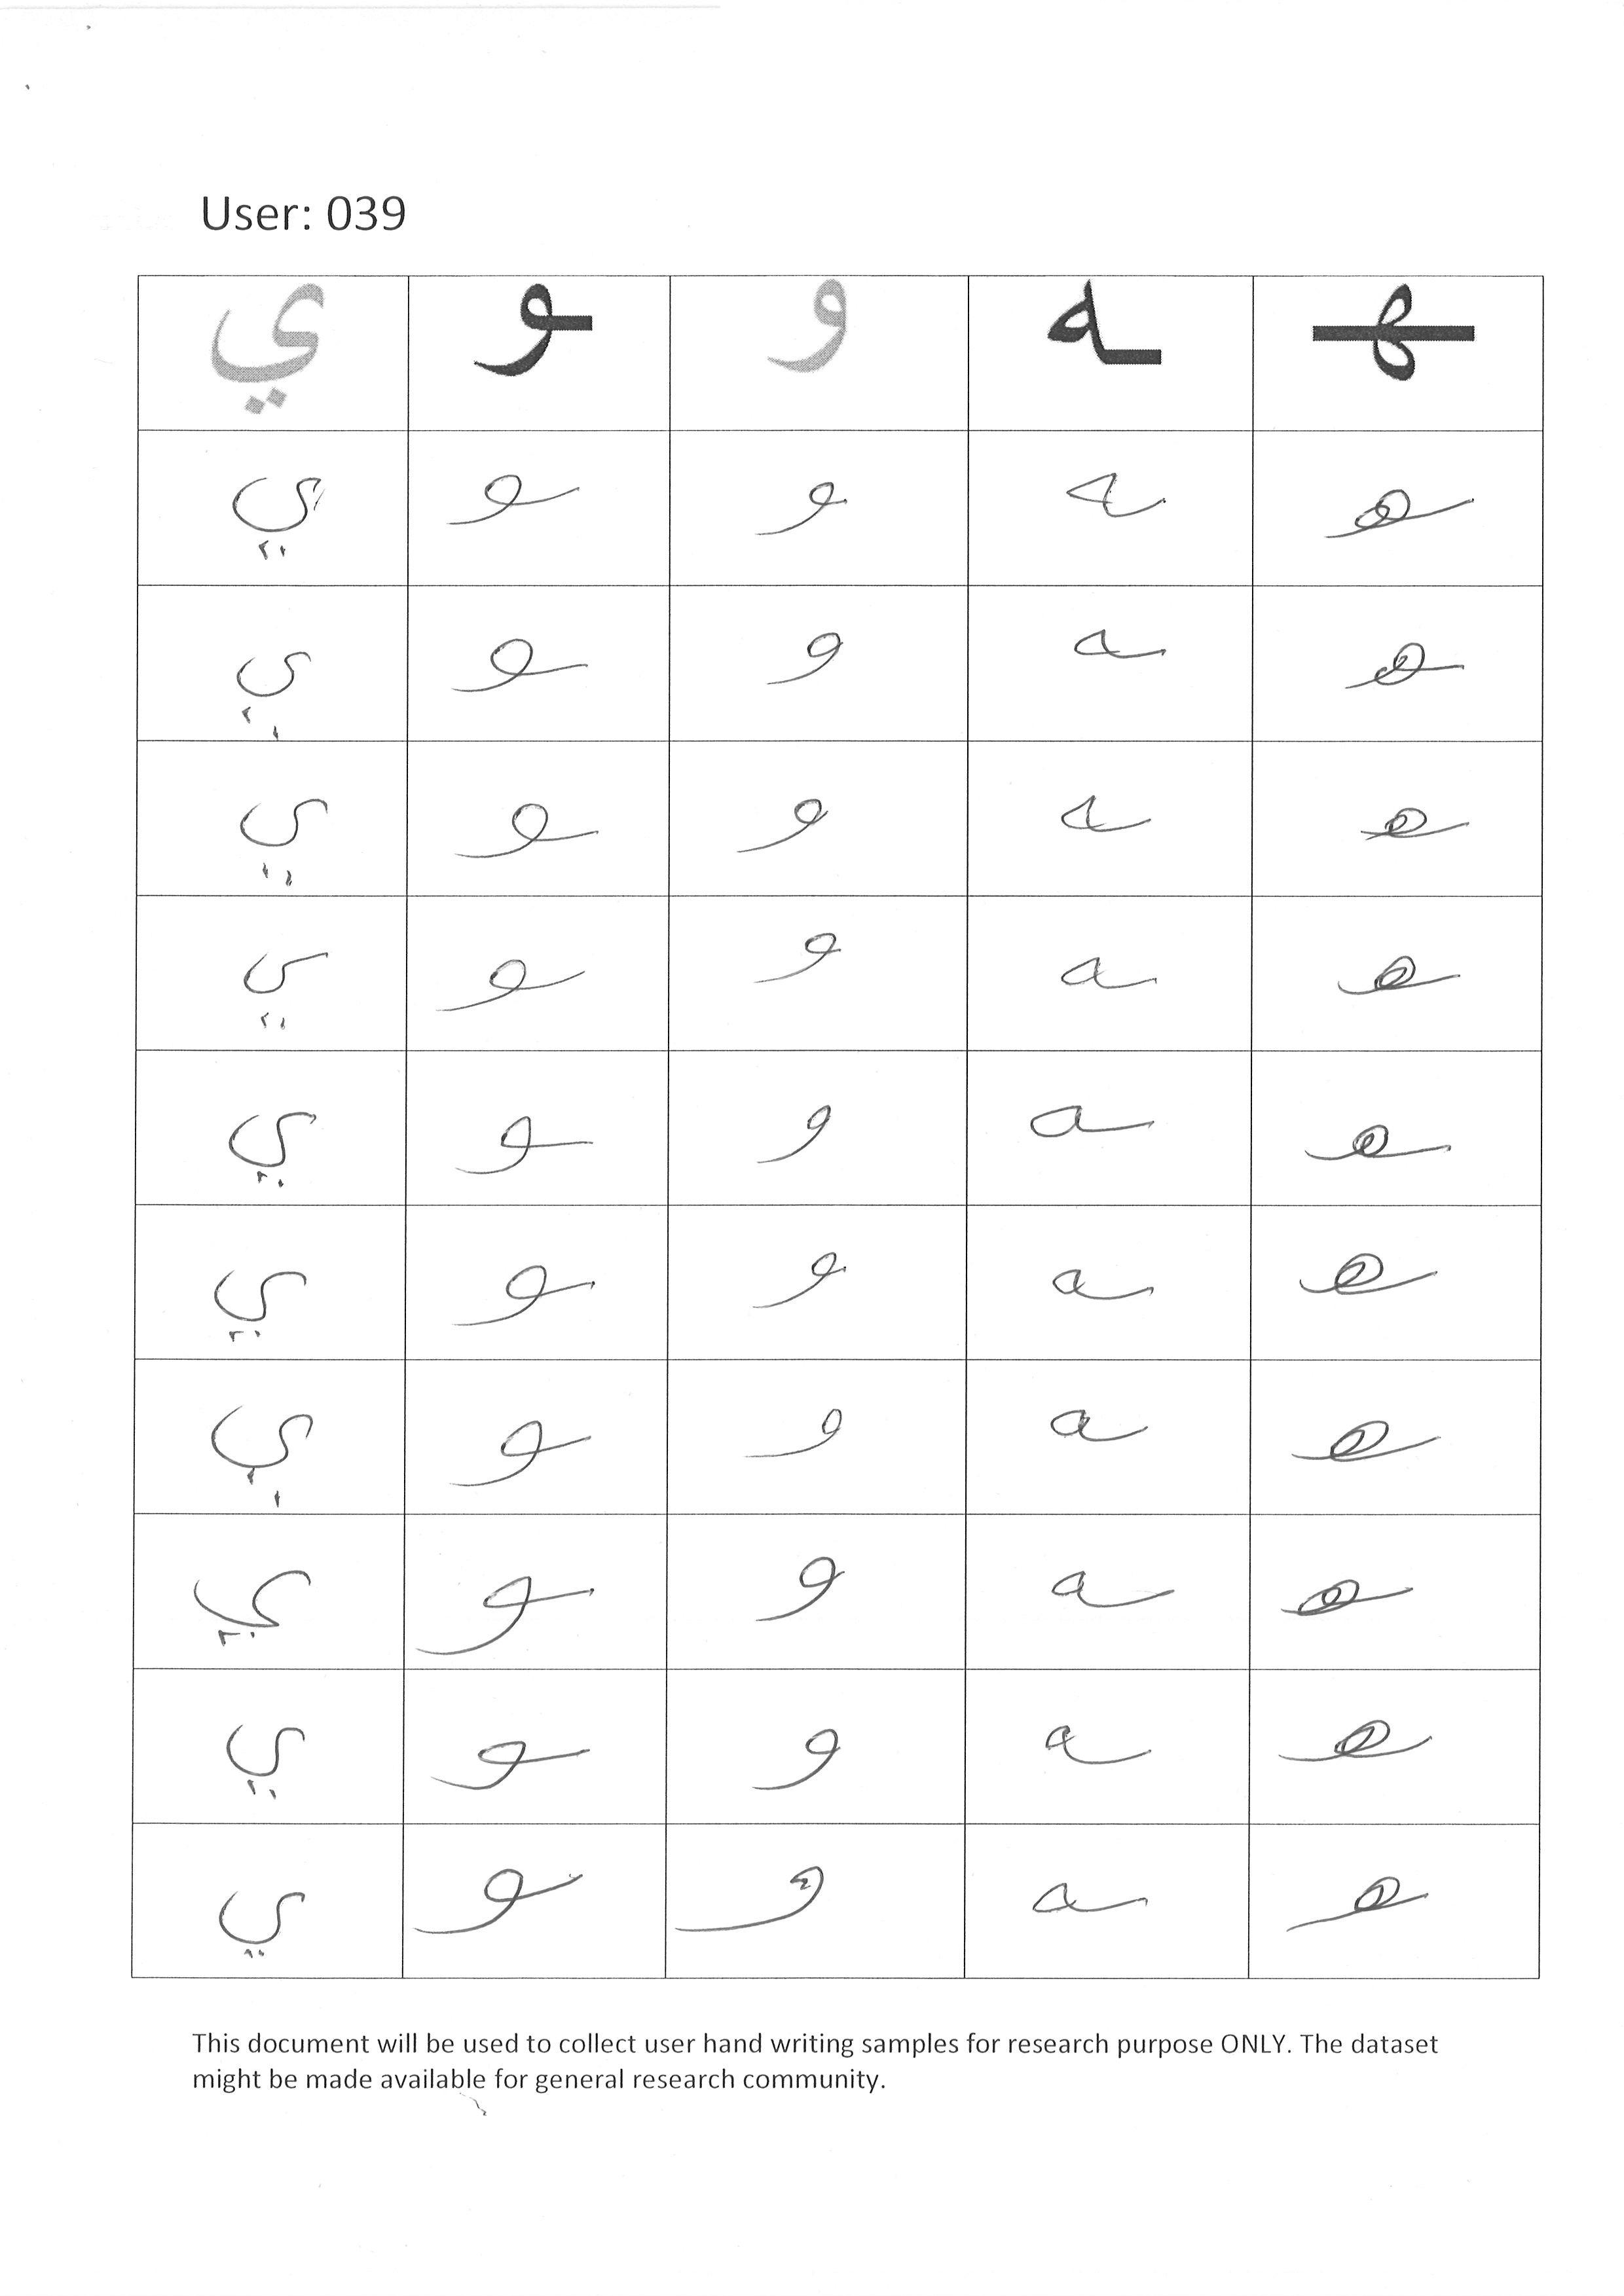 User: 039
ي ـو و ـه ـهـ
ي ـو و ـه ـهـ
ي ـو و ـه ـهـ
ي ـو و ـه ـهـ
ي ـو و ـه ـهـ
ي ـو و ـه ـهـ
ي ـو و ـه ـهـ
ي ـو و ـه ـهـ
ي ـو و ـه ـهـ
ي ـو و ـه ـهـ
ي ـو و ـه ـهـ
This document will be used to collect user hand writing samples for research purpose ONLY. The dataset
might be made available for general research community.